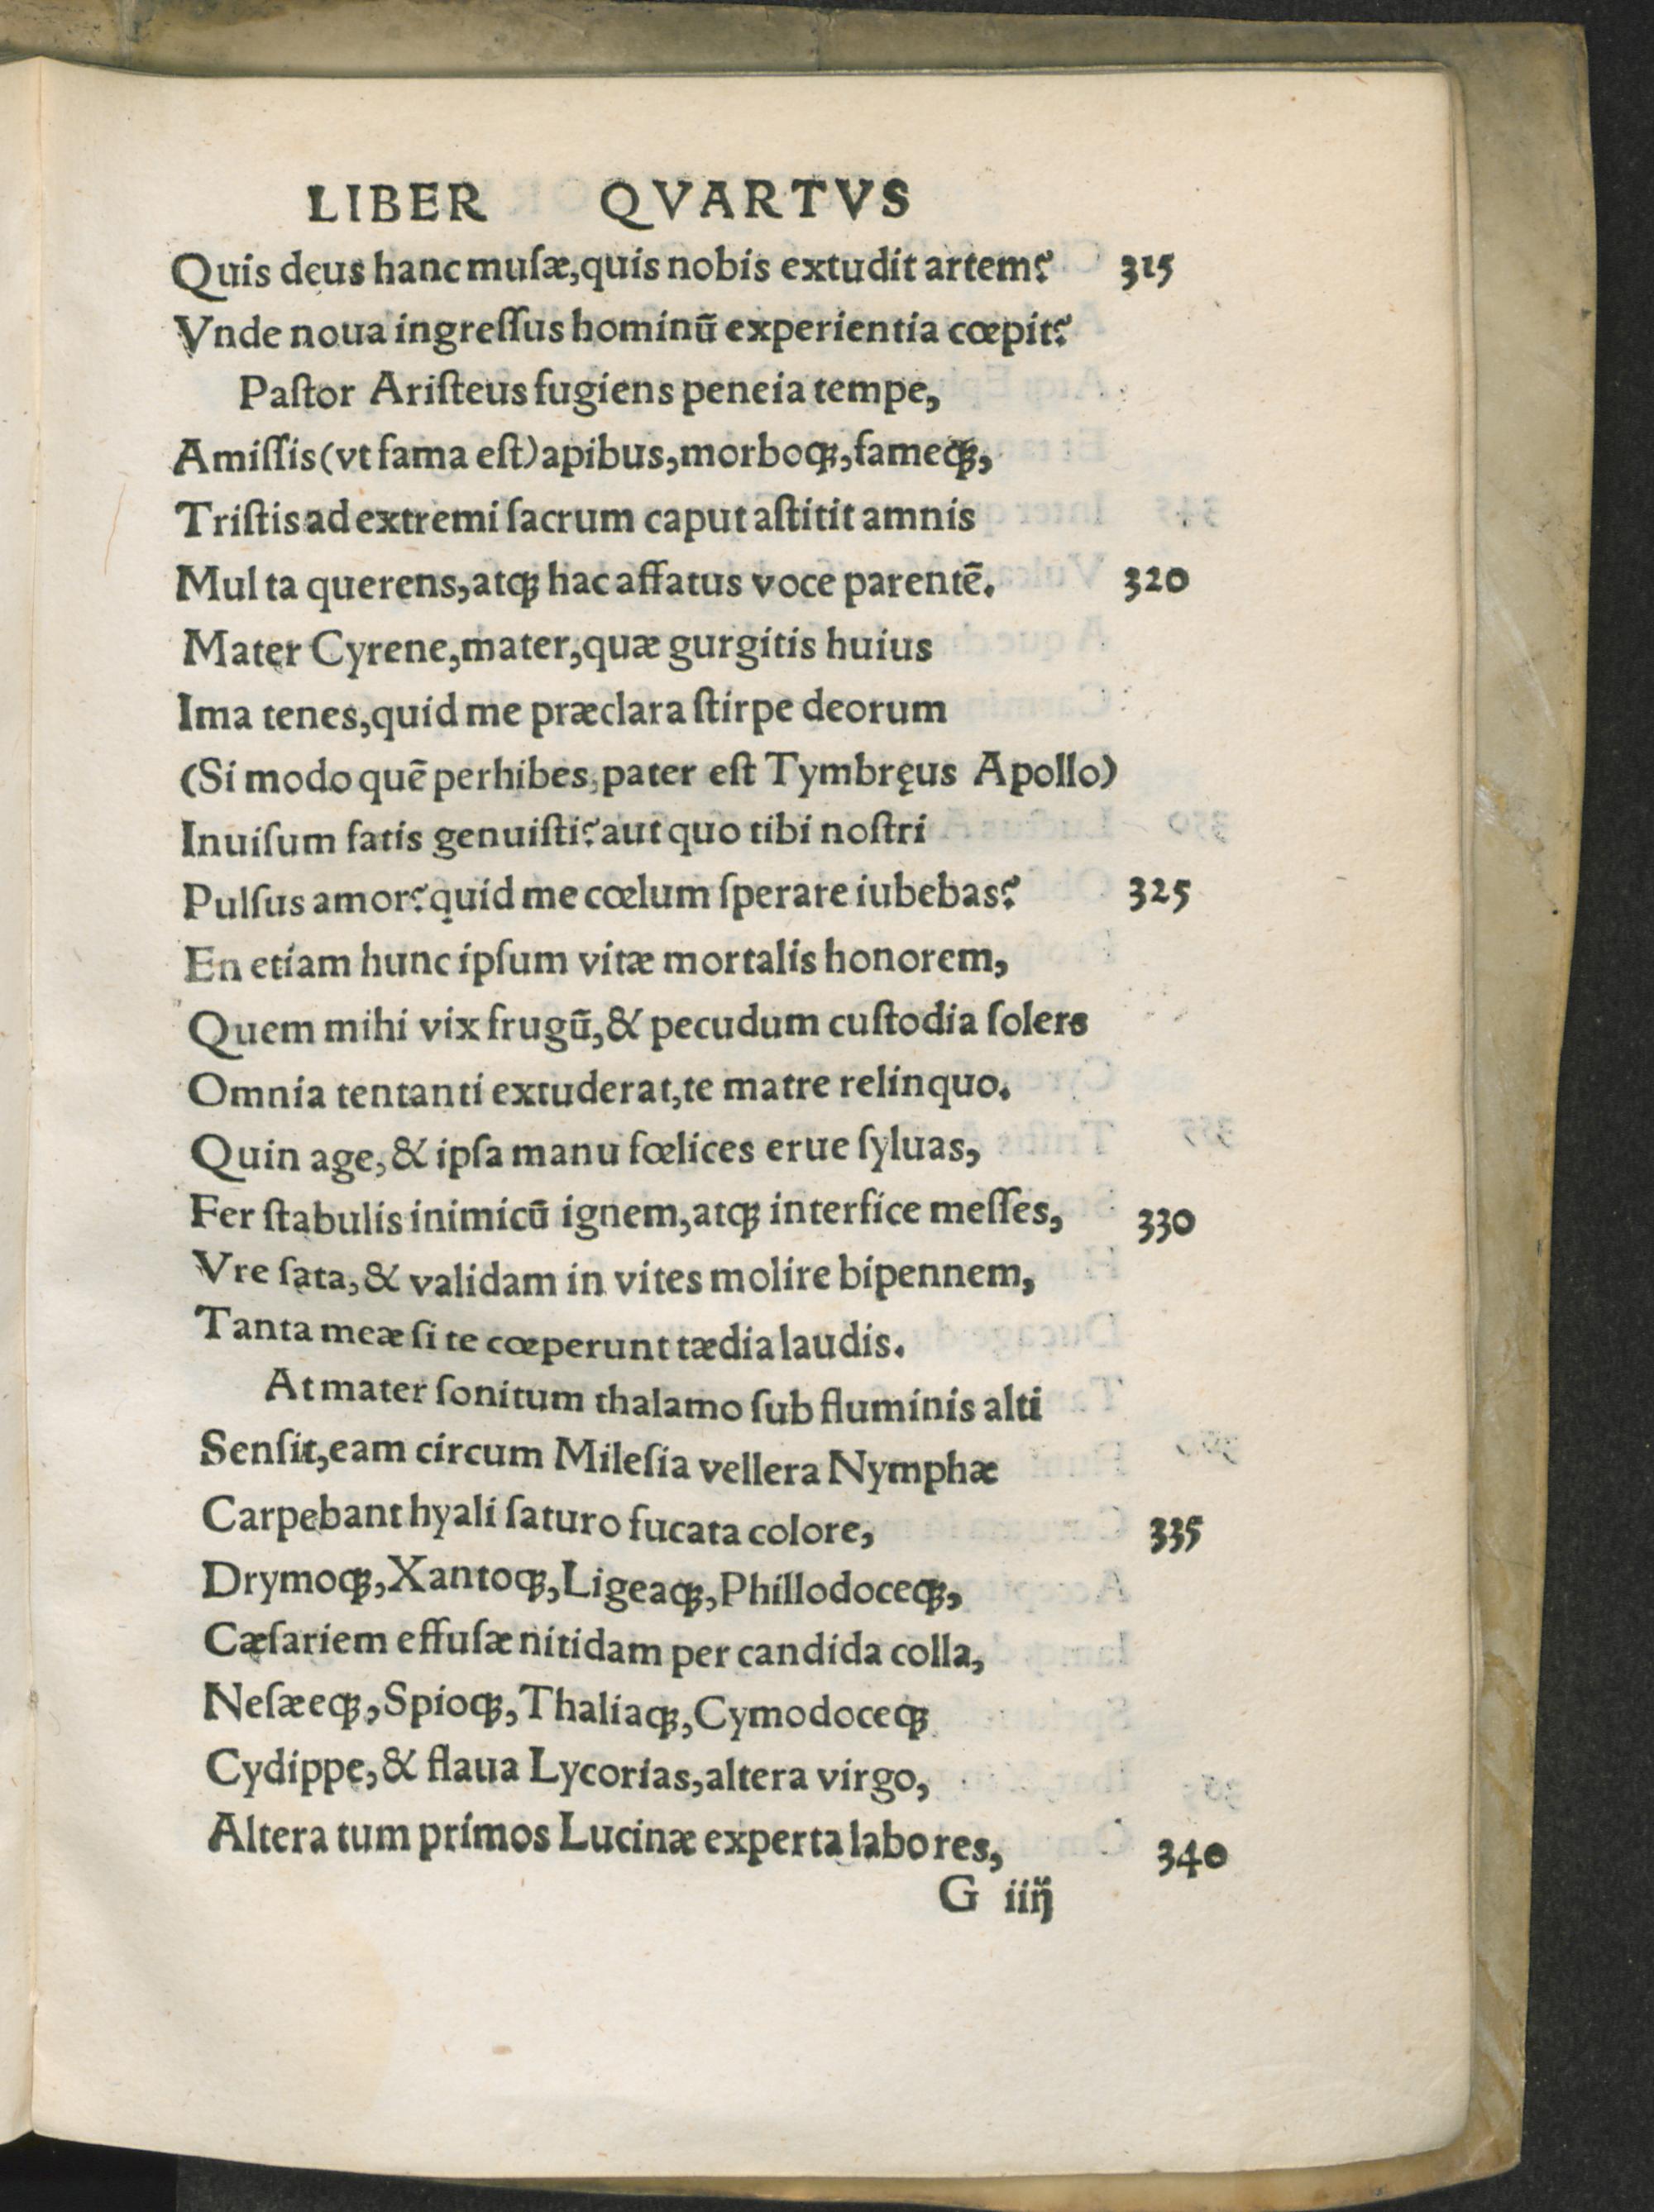 LIBER QVARTVS
Quis deus hanc muſæ,quis nobis extudit artem? 315
Vnde noua ingreſſus hominū experientia cœpit?
Paſtor Ariſteus fugiens peneia tempe,
Amiſſis(vt fama eſt)apibus,morboqꝫ,fameqꝫ,
Triſtis ad extremi ſacrum caput aſtitit amnis
Multa querens,atqꝫ hac affatus voce parentē. 320
Mater Cyrene,mater,quæ gurgitis huius
Ima tenes,quid me præclara ſtirpe deorum
(Si modo quē perhibes,pater eſt Tymbręus Apollo)
Inuiſum fatis genuiſti?aut quo tibi noſtri
Pulſus amor?quid me cœlum ſperare iubebas? 325
En etiam hunc ipſum vitæ mortalis honorem,
Quem mihi vix frugū,& pecudum cuſtodia ſolers
Omnia tentanti extuderat,te matre relinquo.
Quin age,& ipſa manu fœlices erue ſyluas,
Fer ſtabulis inimicū ignem,atqꝫ interfice meſſes, 330
Vre ſata,& validam in vites molire bipennem,
Tanta meæ ſi te cœperunt tædia laudis.
At mater ſonitum thalamo ſub fluminis alti
Senſit,eam circum Mileſia vellera Nymphæ
Carpebant hyali ſaturo fucata colore, 335
Drymoqꝫ,Xantoqꝫ,Ligeaqꝫ,Phillodoceqꝫ,
Cæſariem effuſæ nitidam per candida colla,
Neſæeqꝫ,Spioqꝫ,Thaliaqꝫ,Cymodoceqꝫ
Cydippe,& flaua Lycorias,altera virgo,
Altera tum primos Lucinæ experta labores, 340
G iiij